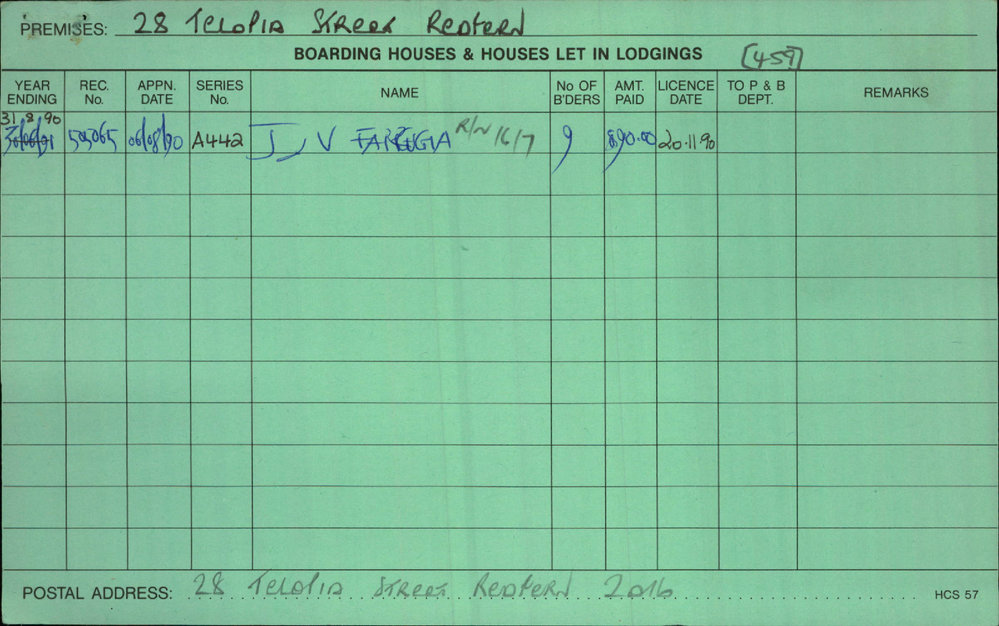 PREMISES: 28 Telopia Street Redfern
BOARDING HOUSES & HOUSES LET IN LODGINGS [459]
YEAR ENDING REC. No. APPN. DATE SERIES No. NAME No OF B'DERS AMT. PAID LICENCE DATE TO P & B DEPT. REMARKS
31.8.90
505065 06/08/90 A442 J V FARRUGIA R/N 16/7 9 £90.00 20.11.90
POSTAL ADDRESS: 28 Telopia Street Redfern 2016 HCS 57